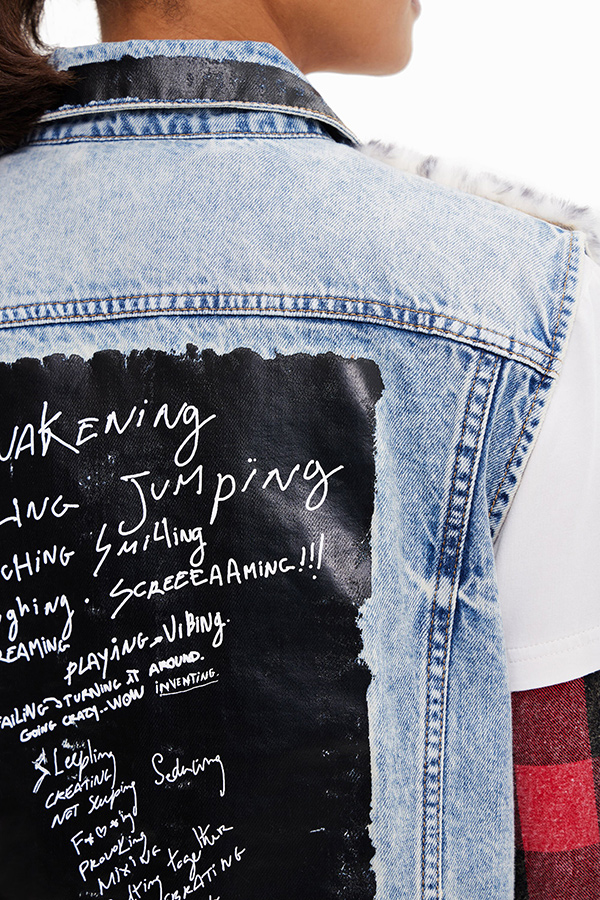 WAKENING
LING JUMPING
CHING SMiLLing
ughing. SCREEEAAMING!!!
REAMING
PLAYING→VIBING.
FAILING→TURNING IT AROUND.
GOING CRAZY--WOW INVENTING.
SLeepling
CREATING Seducing
NET Sleeping
F*♡*ing
PROVOKING
MIXING
tting together
BRATING